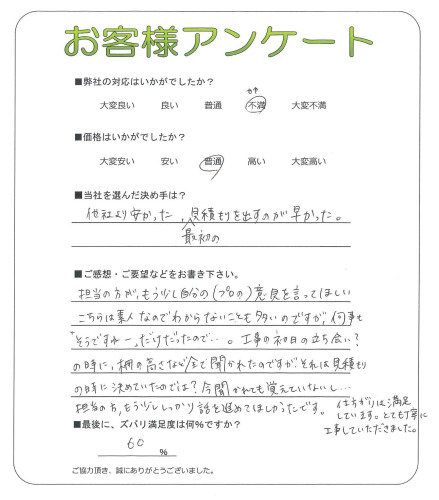 お客様アンケート
■弊社の対応はいかがでしたか？
やや
大変良い 良い 普通 不満 大変不満
■価格はいかがでしたか？
大変安い 安い 普通 高い 大変高い
■当社を選んだ決め手は？
他社より安かった、見積もりを出すのが早かった。
最初の
■ご感想・ご要望などをお書き下さい。
担当の方が、もう少し自分の（プロの）意見を言ってほしい
こちらは素人なのでわからないことも多いのですが、何事も
"そうですねー"、だけだったので…。工事の初日の立ち会い？
の時に、棚の高さなど全て聞かれたのですがそれは見積もり
の時に決めていたのでは？今聞かれても覚えていないし…
担当の方、もう少ししっかり話を進めてほしかったです。
仕上がりは満足
しています。とても丁寧に
工事していただきました。
■最後に、ズバリ満足度は何％ですか？
60 ％
ご協力頂き、誠にありがとうございました。